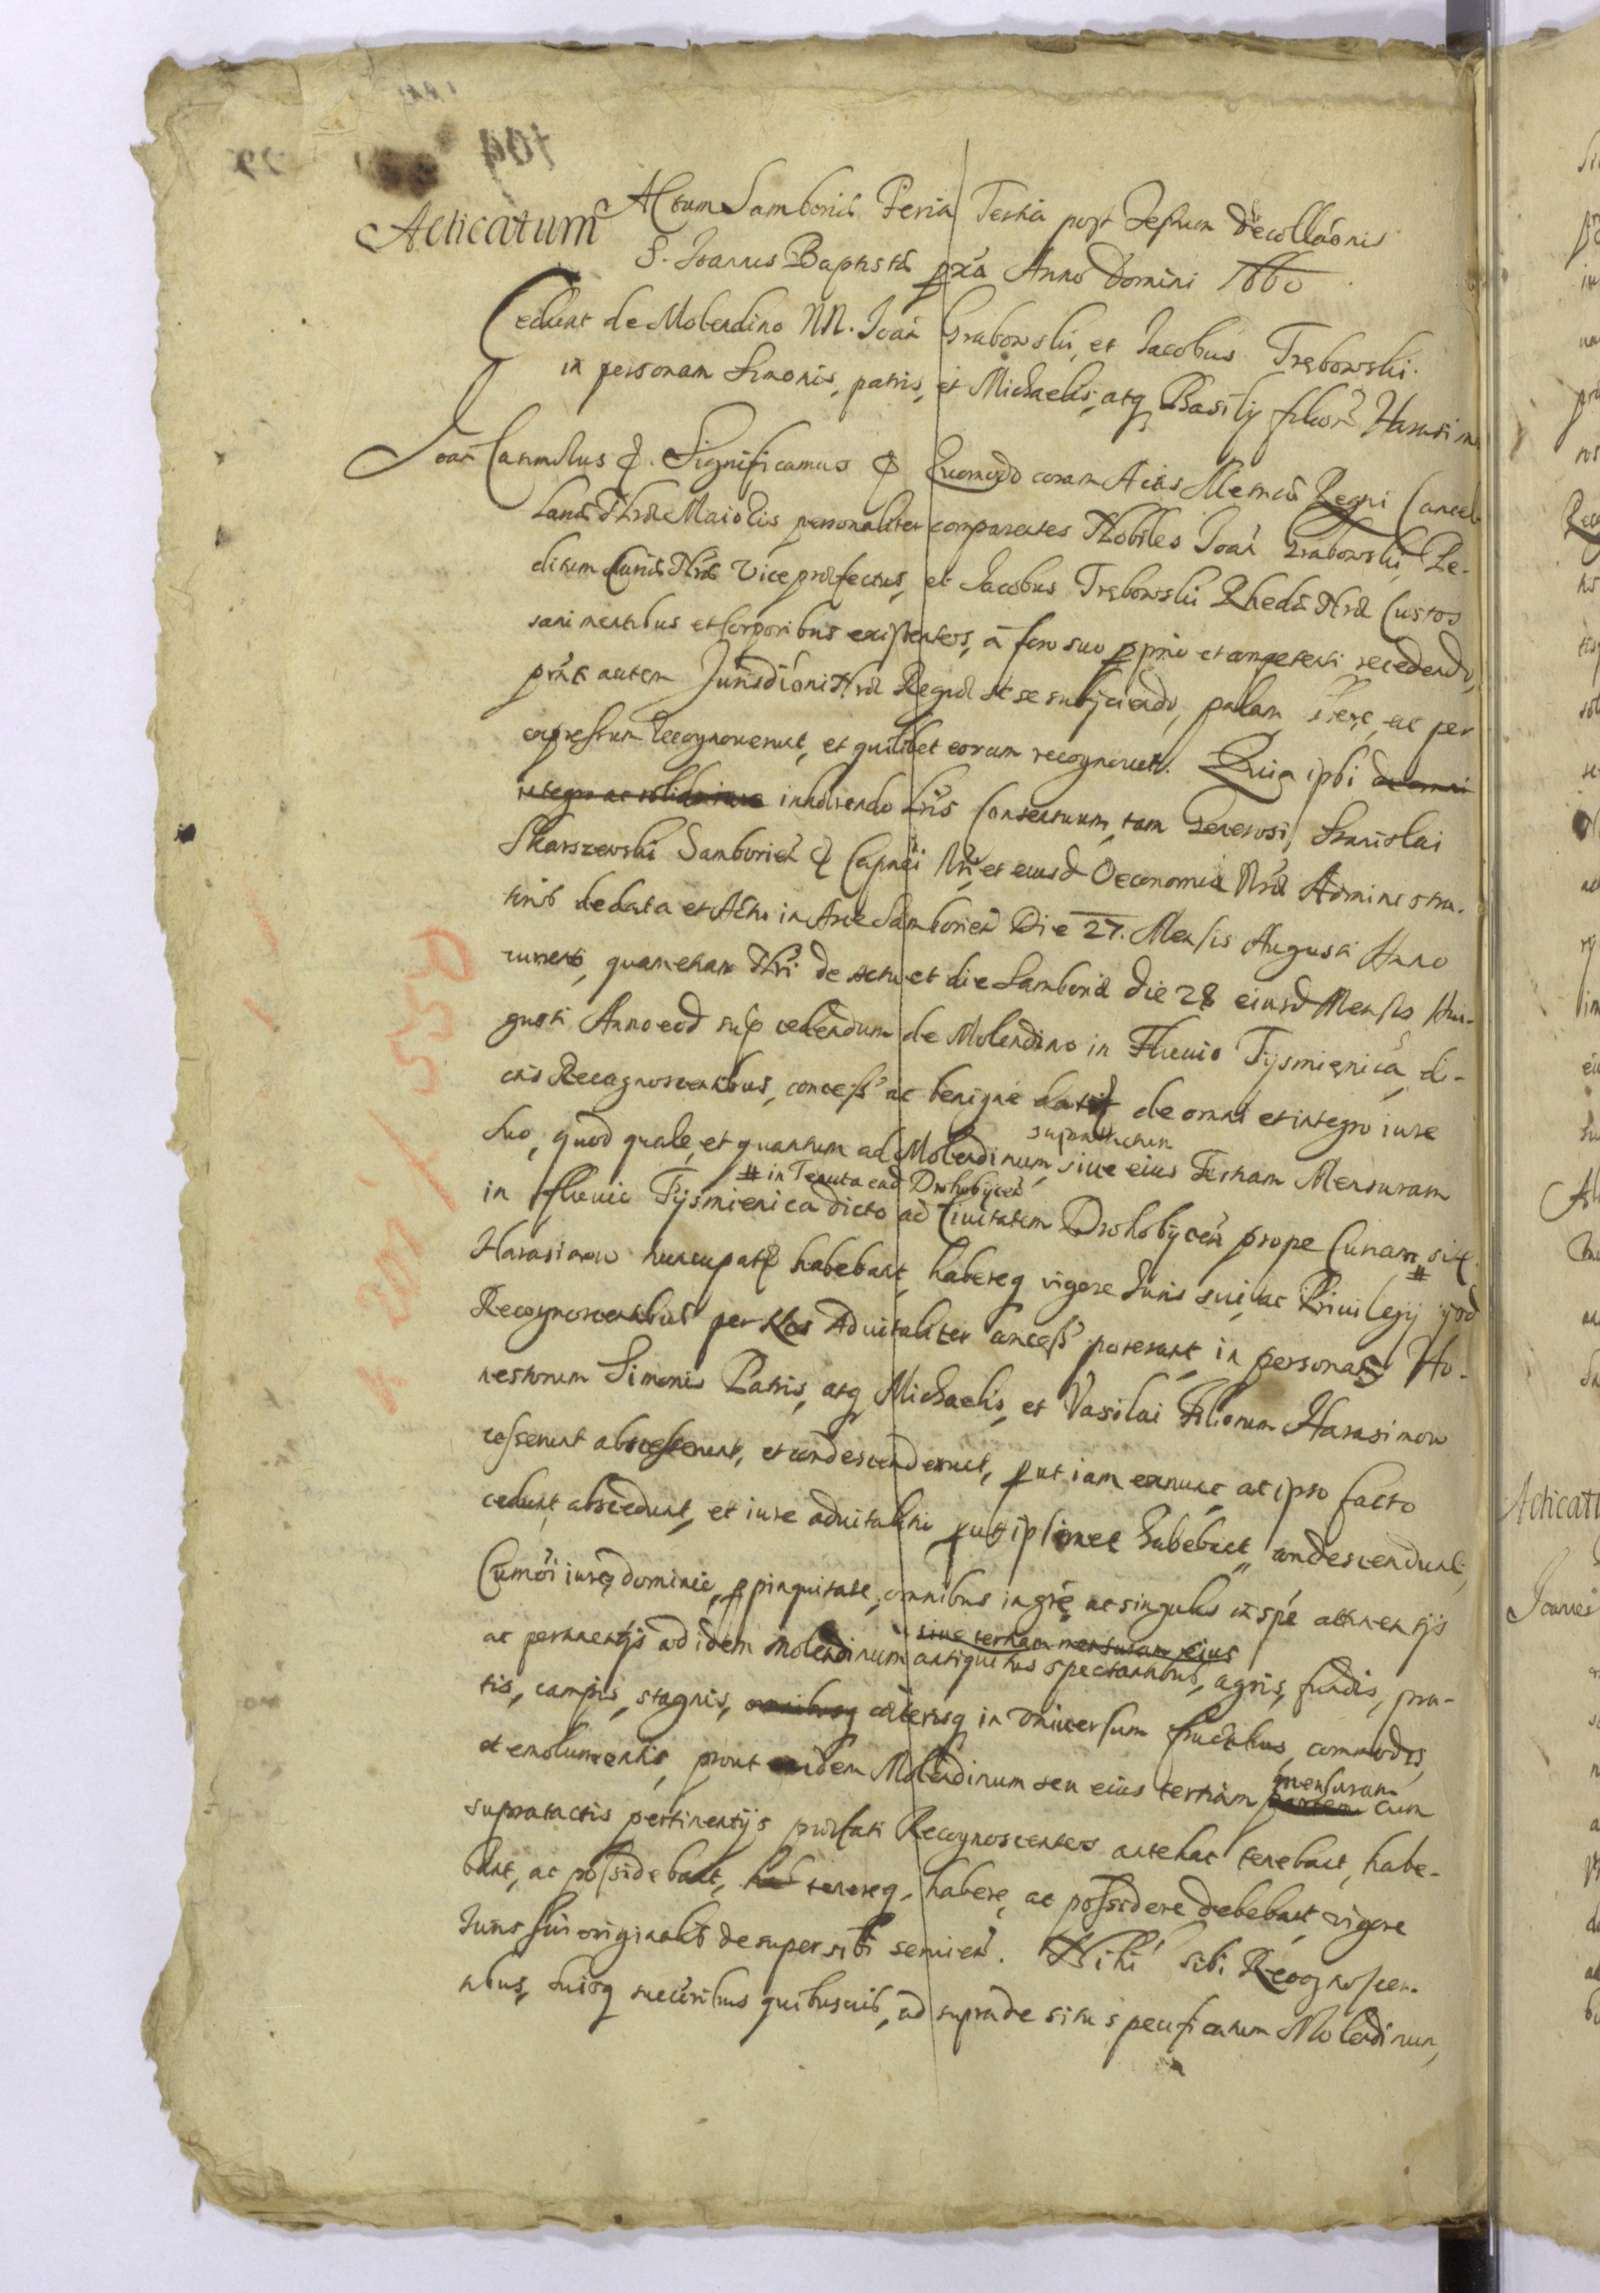 Acticatum
Actum Samboriæ Feria Tertia post Festum Decollaõnis
S. Joannis Baptistæ pxã Anno Domini 1660
Cedunt de Molendino NN. Joañ Grabowski, et Jacobus Trębowski
in personam Simonis, patris, et Michaelis, atq Basilij filior Harasimow
Joañ Casimirus &. Significamus & Quomodo coram Actis Metricæ Regni Cancel
lariæ Nræ Maioris personaliter comparentes Nobiles Joañ Grabowski, Pe-
ditum Curiæ Nræ Vice præfectus, et Jacobus Trębowski Rhedæ Nræ Custos
sani mentibus et corporibus existentes, à foro suo pprio et competenti recedendo,
pñti autem Jurisdiõni Nræ Regiæ se subijciendo, palam libere, ac per
expressum recognoverunt, et quilibet eorum recognovit. Quia ipsi de omni
integro ac solido iure inhærendo Lris Consensuum, tam Generosi Stanislai
Skarszewski Samborień & Capnei Nri et eiusd Oeconomiæ Nræ Administra-
toris de data et Actu in Arce Samborień Die 27. Mensis Augusti Anno
currenti, quam etiam Nri de actu et die Samboriæ die 28 eiusd Mensis Au-
gusti Anno eod sup cedendum de Molendino in Fluvio Tyśmienica, di-
ctis Recognoscentibus, concess ac benigne datis de omni et integro iure
suo, quod quale, et quantum ad Molendinum, sive eius Tertiam Mensuram
# in Tenuta ead Drohobyceń
in fluvio Tyśmienica dicto ad Civitatem Drohobyceń prope Curiam # sit
Harasimow nuncupat habebant, habereq vigore Juris sui, ac Privilegij
Recognoscentibus per Nos Advitaliter concess poterant, in personas Ho-
nestorum Simonis Patris, atq Michaelis, et Vasilai Filiorum Harasimow
cesserunt abscesserunt, et condescenderunt, put iam exnunc ac ipso facto
cedunt abscedunt, et iure advitalitio put ipsimet habebant condescendunt,
Cum õi iure, dominio, ppinquitate, omnibus in gre, ac singulis in spe attinentijs
sive tertiam mensuram eius
ac pertinentijs ad idem Molendinum antiquitus spectantibus, agris, fundis, pra-
tis, campis, stagnis, omnibusq cæterisq in universum fructibus, commodis,
et emolumentis, prout eidem Molendinum seu eius tertiam partem mensuram cum
supratactis pertinentijs præfati Recognoscentes antehac tenebant, habe-
bant, ac possidebant, hab tenereq, habere, ac possidere debebant vigore
Juris sui originalis desuper sibi servień. Nihil sibi Recognoscen-
tibus, suisq succribus quibusvis, ad supra de situ specificatum Molendinum,